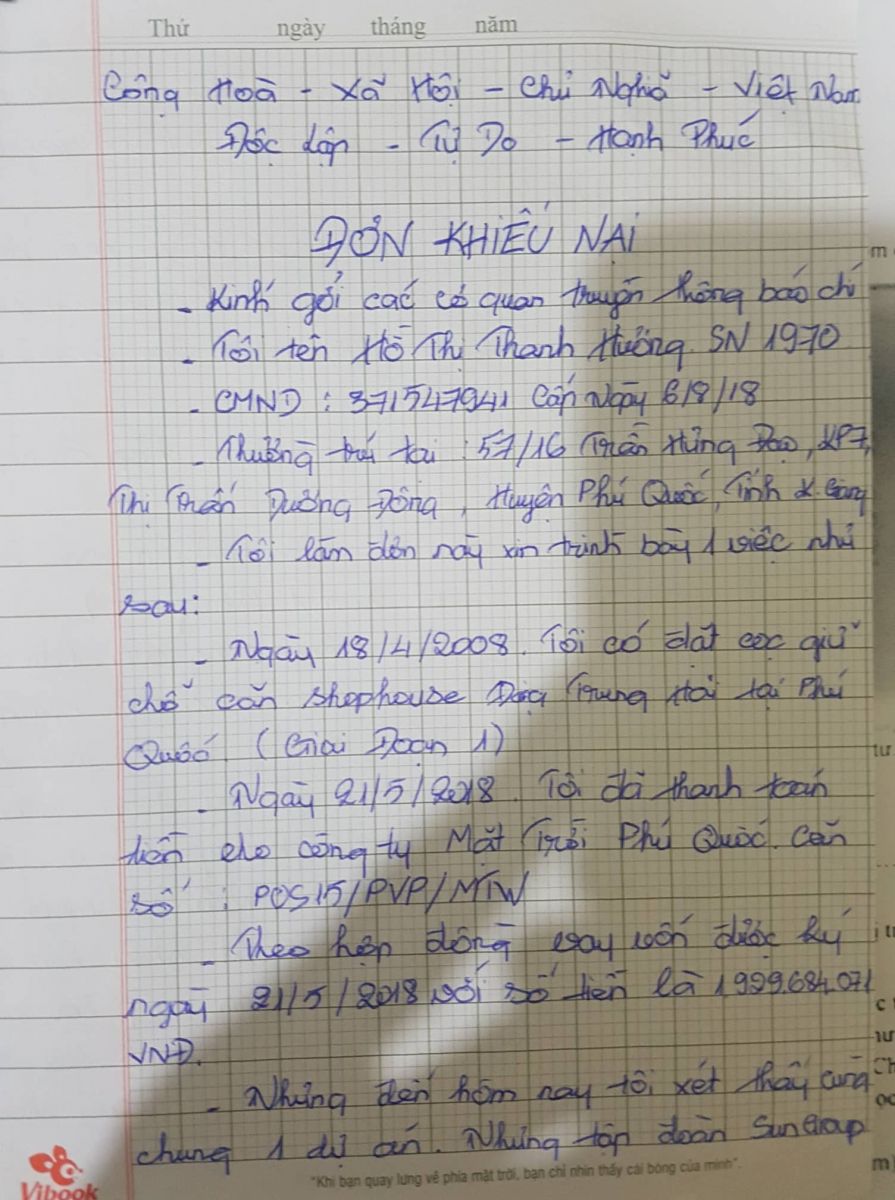 Thứ ngày tháng năm
Công Hoà - Xã Hội - Chủ Nghĩã - Việt Nam
Độc lập - Tự Do - Hạnh Phúc
ĐƠN KHIẾU NẠI
- Kính gởi các cơ quan truyền thông báo chí
- Tôi tên Hồ Thị Thanh Hường. SN 1970
- CMND : 371547941 Cấp Ngày 6/8/18
- Thường trú tại : 57/16 Trần Hưng Đạo, KP7,
Thị Trấn Dương Đông, Huyện Phú Quốc, Tỉnh K. Giang
- Tôi làm đơn này xin trình bày 1 việc như
sau:
- Ngày 18/4/2008. Tôi có đặt cọc giữ
chỗ căn shophouse Địa Trung Hải tại Phú
Quốc. (Giai Đoạn 1)
- Ngày 21/5/2018. Tôi đã thanh toán
tiền cho công ty Mặt Trời Phú Quốc. Căn
số : POS15/PVP/MTW
- Theo hợp đồng vay vốn được ký
ngày 21/5/2018 với số tiền là 1.999.684.071
VNĐ.
- Nhưng đến hôm nay tôi xét thấy cùng
chung 1 dự án. Nhưng tập đoàn SunGroup
Vibook
"Khi bạn quay lưng về phía mặt trời, bạn chỉ nhìn thấy cái bóng của mình".